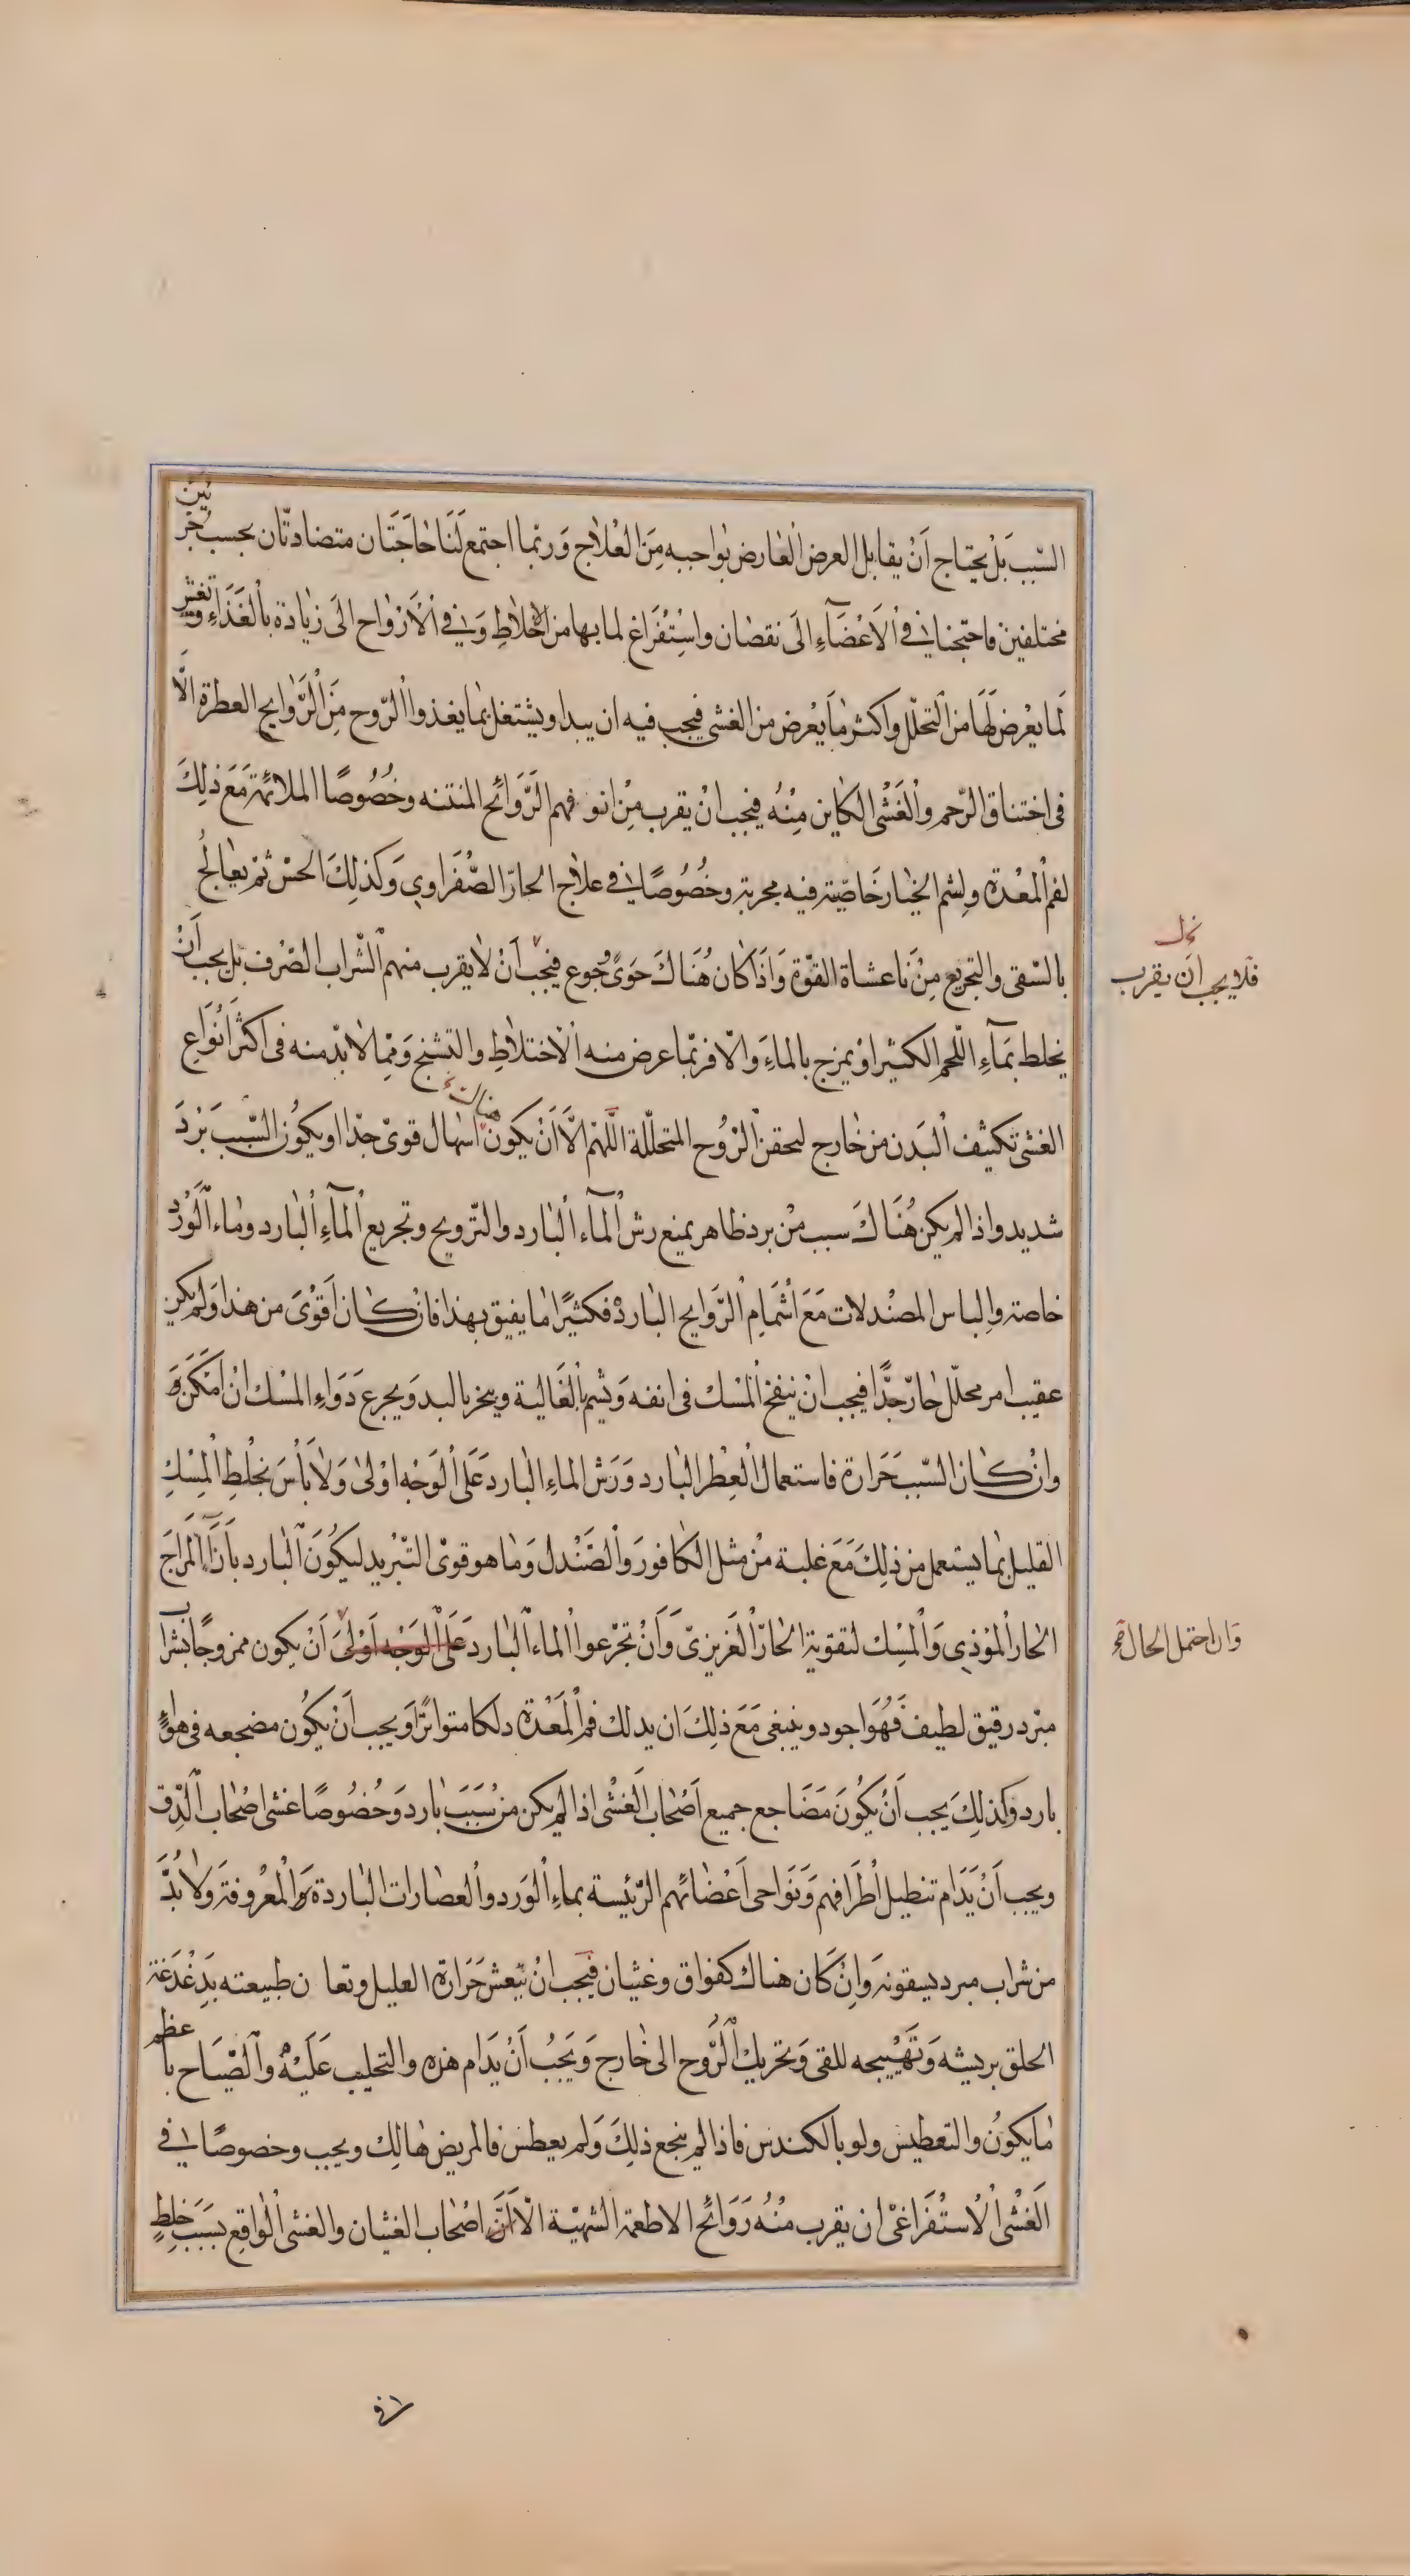 السّبب بَلْ يحتاج اَنْ يقابل العرض العَارض بوَاجبه مِنَ العْلاج وَربّما اجتمع لَنَا حَاجَتَان متضادتّان بحسب جزئين
مختلفين فاحتجنا فى اْلاَعْضَآءِ الىَ نقصَان واستْفِرَاغ لما بها من الاخلاطِ وَفى اْلاَرْوَاح الىَ زيَادة بالْغَذَاءِ وتغير
لمَا يعْرض لَهَا من التحلّل واكثر مَا يعْرض من الغشى فيجب فيه ان يبدا ويشتغل بمَا يغذوا الرّوح مِنَ الرَّوَايح العطرة الاَّ
فى اختناق الرّحم والْغَشْى الكَاين مِنْهُ فيجب انْ يقرب مِنْ انوفهم الرَّوَائح المنتنه وخُصُوصًا الملائمة مَعَ ذلِكَ
لفم المْعْدة ولشم الخيَار خَاصّيّة فيه مجربة وخُصُوصًا فى علاج الحارّ الصُّفَراوى وَكذلِكَ الخس ثمّ يعَالجُ
بالسّقى والتجريع مِنْ نَاعشاة القوّة وَاذَا كَان هُنَاكَ خوًى وجُوع فيجبُ اَنْ لاَ يقرب منهم الشّراب الصّرف بَل يجب اَنْ
يخلط بمَآءِ اللّحم الكثير اوْ يمزج بالماءَ وَالاّ فربمّا عرض منه اْلاختلاطِ والتشنج وَممّا لاَ بدّ منه فى اكثر اَنْوَاعِ
الغشى تكثيف اْلبَدن من خَارج لتحقن الرّوُح المتحللّة اللّهمّ الاَّ اَنْ يكون هناك اسهَال قوىّ جدّا او يكوُن السّبب بَرْدَ
شديد واذا لم يكن هُنَاكَ سبب منْ برد ظاهر يمنع رش اْلمآءَ اْلبَارد والترّويح وتجريع اْلمآءِ اْلبَارد ومَاء الْوَرْد
خاصة والباس المصنْدلات مَعَ اْشمَام الرَّوايح البَاردْ فكثيًرا مَا يفيق بهذا فانْ كَان اَقْوىَ من هذا وَلم يكن
عقيب امر محللّ حَارّ جدًّا فيجب انْ ينفخ اْلمسْك فى انفه وَيشم بالْغَاليَة ويبخر بالبد وَيجرع دَوَاءِ المسْك انْ امْكَنَ
وانْ كَان السّبب حَرَارة فاستعمال الْعِطْر البَارد وَرَش الماءِ البَارد عَلى الْوَجْه اوْلىَ وَلاَ بَأْسَ بخلْطِ الْمِسْكِ
القليل بمَا يستعمل من ذلِكَ مَعَ غلبة مِنْ مثل الكَافور وَالْصَنْدل وَمَا هو قوىّ التّبْريد ليكُونَ اْلبَارد بأِزَآءِ المزَاجَ
الحَار الْموْذى وَالْمِسْك لتقوية الحَارّ الْغَريزىّ وَاَنْ تجرّعوا الْماء اْلبَارد عَلىَ الْوَجْه اَوْلىَ اَنْ يكون ممزوجًا بشراب
مبّرد رقيق لطيف فَهُوَ اجود وينبغى مَعَ ذلِكَ ان يدلك فم اْلمَعْدة دلكا متواترًا وَيجب اَنْ يكُون مضجعه فى هوَاءٍ
بارد وكَذلِكَ يجب اَنْ يكُونَ مَضَاجع جميع اَصْحَاب الْغَشْى اذا لم يكن منْ سَببَ بَارد وَخُصُوصًا غشى اصْحَاب الْدِّق
ويجب اَنْ يَدَام تنطيل اَطْرَافهم وَنَوَاحى اَعْضَائهم الرّئيسة بماءِ الْوَرد والْعصَارات البَاردة والْمعْروفة وَلاَ بُدَّ
من شراب مبرد يسقونه وَانْ كَان هناك كفواق وغثيان فيَجب انْ يَنعش حَرَارة العليل وتعان طبيعته بدَغْدَغَة
الحلق بريشه وَتَهْييجه للقى وَتحريك الْرُّوح الى خَارج وَيَجبُ اَنْ يَدَام هزه والتحليب عَليَهْ والْصّيَاح باعظم
مَا يكوُن والتعطيس ولو بالكندس فاذا لم ينجع ذلِكَ وَلم يعطس فالمريض هَالك ويجب وخصوصًا فى
الْغَشْى اْلاُسْتْفِرَاغىّ ان يقرب مْنُهُ رَوَائح الاطعمة الشهيّة الاَّ اَنَّ اصْحَاب الغثيان والغشى الْوَاقع بسَببَ خلِطٍ
نخـ
فلا يجب اَن يقرب
وَان احتمل الحال